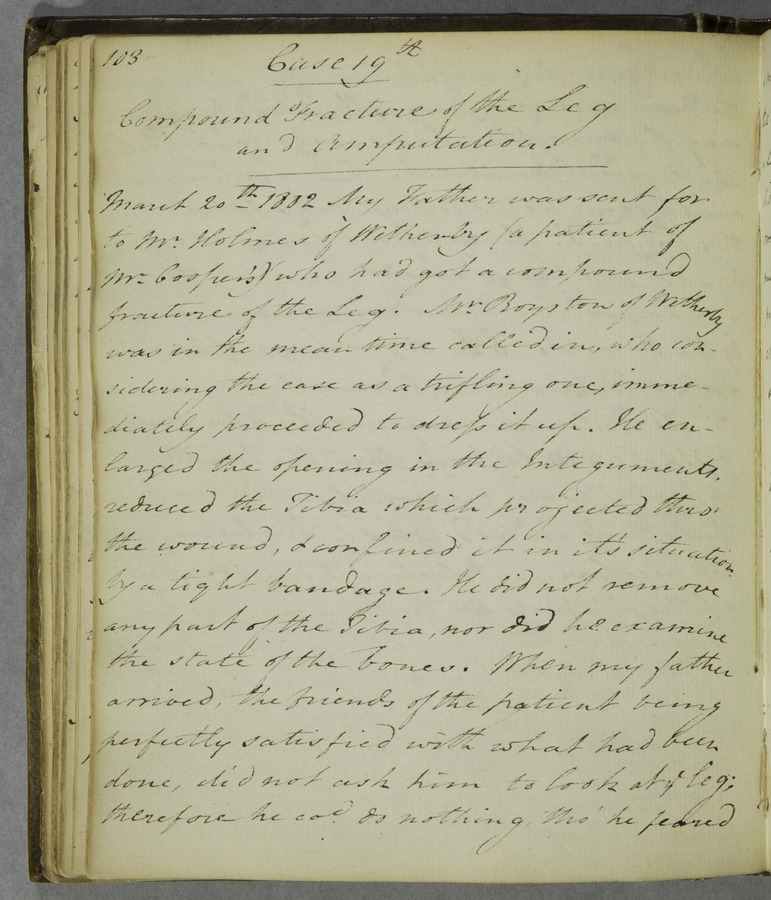 103
Case 19th
Compound Fracture of the Leg
and Amputation.
March 20th 1802 My Father was sent for
to Mr. Holmes of Wetherby (a patient of
Mr. Cooper's) who had got a compound
fracture of the Leg. Mr. Royston of Wetherby
was in the mean time called in, who con-
sidering the case as a trifling one, imme-
diately proceeded to dress it up. He en-
larged the opening in the Integuments,
reduced the Tibia which projected thro'
the wound, & confined it in it's situation
by a tight bandage. He did not remove
any part of the Tibia, nor did he examine
the state of the bones. When my father
arrived, the friends of the patient being
perfectly satisfied with what had been
done, did not ask him to look at ye leg;
therefore he cod. do nothing, tho' he feared